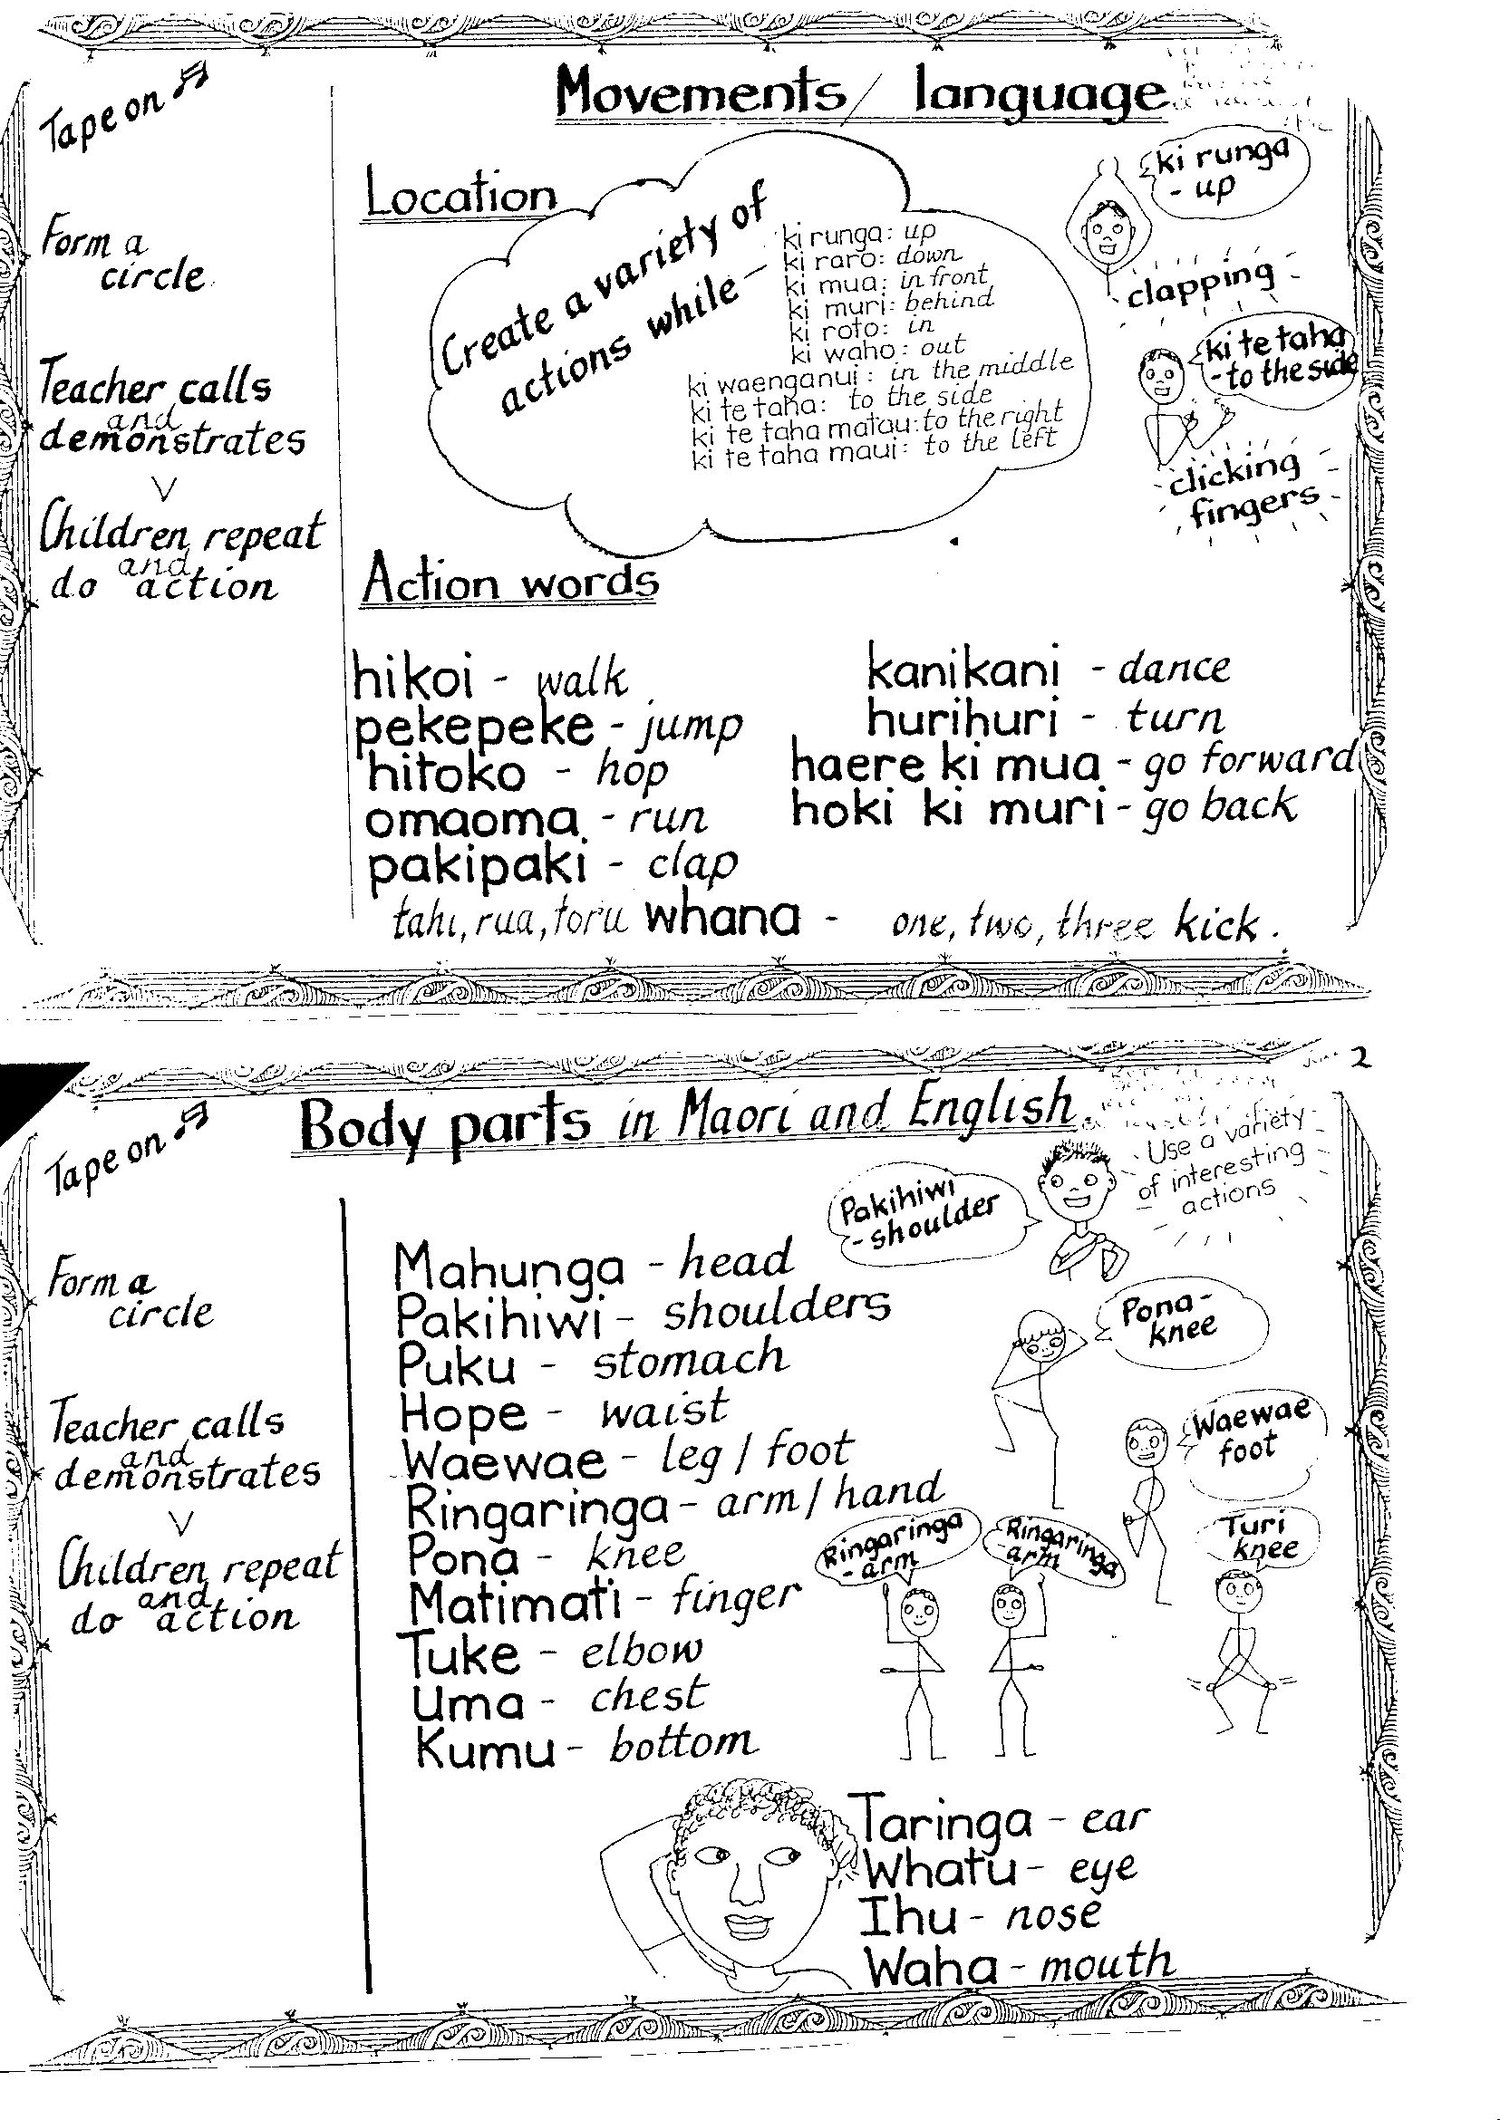 Movements/ language
Tape on
Form a
circle
Teacher calls
and
demonstrates
Children repeat
and
do action
Location
Create a variety of
actions while -
ki runga: up
ki raro: down
ki mua: in front
ki muri: behind
ki roto: in
ki waho: out
ki waenganui: in the middle
ki te taha: to the side
ki te taha matau: to the right
ki te taha maui: to the left
ki runga
- up
clapping
ki te taha
- to the side
clicking
fingers
Action words
hikoi - walk
pekepeke - jump
hitoko - hop
omaoma - run
pakipaki - clap
kanikani - dance
hurihuri - turn
haere ki mua - go forward
hoki ki muri - go back
tahi, rua, toru whana - one, two, three kick.
2
Body parts in Maori and English
Tape on
Form a
circle
Teacher calls
and
demonstrates
Children repeat
and
do action
Use a variety
of interesting
actions
Pakihiwi
- shoulder
Mahunga - head
Pakihiwi - shoulders
Puku - stomach
Hope - waist
Waewae - leg / foot
Ringaringa - arm / hand
Pona - knee
Matimati - finger
Tuke - elbow
Uma - chest
Kumu - bottom
Pona -
knee
Waewae
foot
Ringaringa
- arm
Ringaringa
- arm
Turi
knee
Taringa - ear
Whatu - eye
Ihu - nose
Waha - mouth